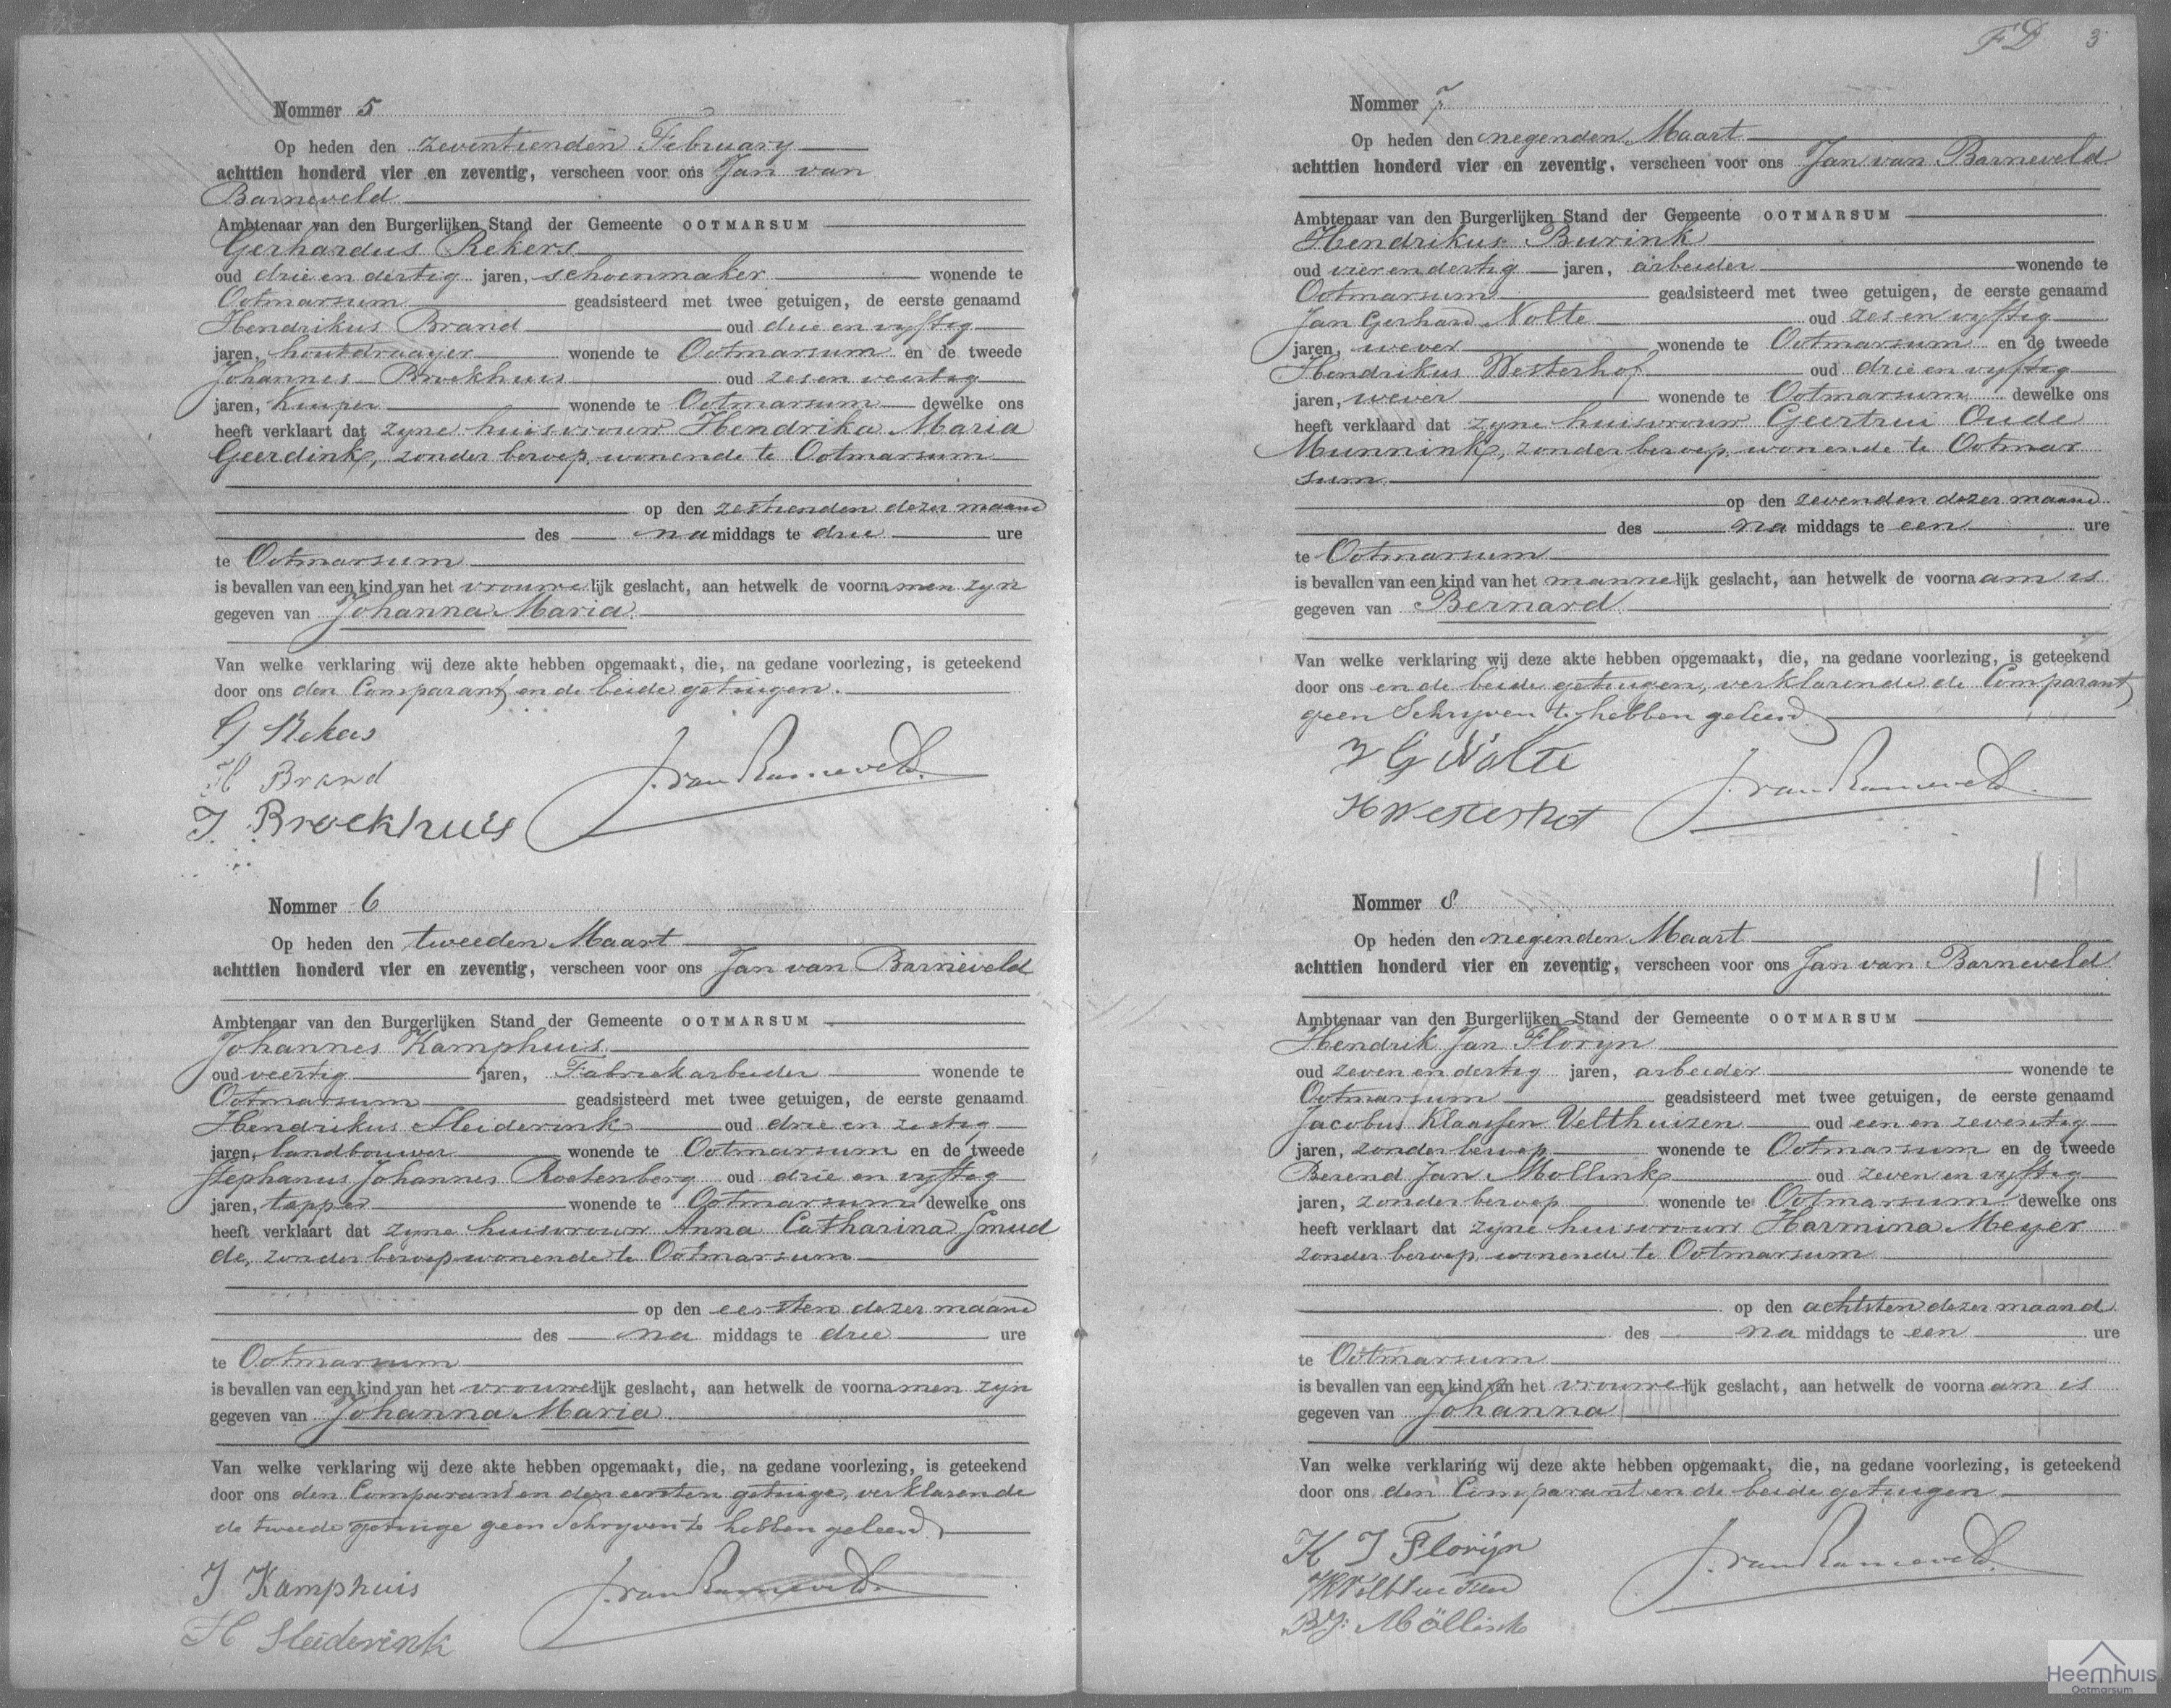 Nommer 5
Op heden den zeventienden February
achttien honderd vier en zeventig, verscheen voor ons Jan van
Barneveld
Ambtenaar van den Burgerlijken Stand der Gemeente OOTMARSUM
Gerhardus Rekers
oud drie en dertig jaren, schoenmaker wonende te
Ootmarsum geadsisteerd met twee getuigen, de eerste genaamd
Hendrikus Brand oud drie en vyftig
jaren, houtdraayer wonende te Ootmarsum en de tweede
Johannes Broekhuis oud zes en veertig
jaren, Kuiper wonende te Ootmarsum dewelke ons
heeft verklaart dat zyne huisvrouw Hendrika Maria
Geerdink, zonder beroep, wonende te Ootmarsum
op den zestienden dezer maand
des na middags te drie ure
te Ootmarsum
is bevallen van een kind van het vrouwelijk geslacht, aan hetwelk de voornamen zyn
gegeven van Johanna Maria.
Van welke verklaring wij deze akte hebben opgemaakt, die, na gedane voorlezing, is geteekend
door ons den Comparant en de beide getuigen.
G Rekers
H Brand
J. Broekhuis
J. van Barneveld.
Nommer 6
Op heden den tweeden Maart
achttien honderd vier en zeventig, verscheen voor ons Jan van Barneveld
Ambtenaar van den Burgerlijken Stand der Gemeente OOTMARSUM
Johannes Kamphuis
oud veertig jaren, Fabriekarbeider wonende te
Ootmarsum geadsisteerd met twee getuigen, de eerste genaamd
Hendrikus Sleiderink oud drie en zestig
jaren, landbouwer wonende te Ootmarsum en de tweede
Stephanus Johannes Roetenberg oud drie en vyftig
jaren, tapper wonende te Ootmarsum dewelke ons
heeft verklaart dat zyne huisvrouw Anna Catharina Smud
de, zonder beroep wonende te Ootmarsum
op den eersten dezer maand
des na middags te drie ure
te Ootmarsum
is bevallen van een kind van het vrouwelijk geslacht, aan hetwelk de voornamen zyn
gegeven van Johanna Maria.
Van welke verklaring wij deze akte hebben opgemaakt, die, na gedane voorlezing, is geteekend
door ons den Comparant en den eersten getuige, verklarende
de tweede getuige geen Schryven te hebben geleerd.
J Kamphuis
H Sleiderink
J. van Barneveld.
FD 3
Nommer 7
Op heden den negenden Maart
achttien honderd vier en zeventig, verscheen voor ons Jan van Barneveld
Ambtenaar van den Burgerlijken Stand der Gemeente OOTMARSUM
Hendrikus Burink
oud vier en dertig jaren, arbeider wonende te
Ootmarsum geadsisteerd met twee getuigen, de eerste genaamd
Jan Gerhard Nolte oud zes en vyftig
jaren, wever wonende te Ootmarsum en de tweede
Hendrikus Westerhof oud drie en vyftig
jaren, wever wonende te Ootmarsum dewelke ons
heeft verklaard dat zyne huisvrouw Geertrui Oude
Munnink, zonder beroep, wonende te Ootmar
sum.
op den zevenden dezer maand
des na middags te een ure
te Ootmarsum
is bevallen van een kind van het mannelijk geslacht, aan hetwelk de voornaam is
gegeven van Bernard
Van welke verklaring wij deze akte hebben opgemaakt, die, na gedane voorlezing, is geteekend
door ons en de beide getuigen, verklarende de Comparant
geen Schryven te hebben geleerd.
J G Nolte
H Westerhof
J. van Barneveld.
Nommer 8
Op heden den negenden Maart
achttien honderd vier en zeventig, verscheen voor ons Jan van Barneveld
Ambtenaar van den Burgerlijken Stand der Gemeente OOTMARSUM
Hendrik Jan Floryn
oud zeven en dertig jaren, arbeider wonende te
Ootmarsum geadsisteerd met twee getuigen, de eerste genaamd
Jacobus Klaassen Velthuizen oud een en zeventig
jaren, zonder beroep wonende te Ootmarsum en de tweede
Berend Jan Mollink oud zeven en vyftig
jaren, zonder beroep wonende te Ootmarsum dewelke ons
heeft verklaart dat zyne huisvrouw Harmina Meyer
zonder beroep, wonende te Ootmarsum
op den achtsten dezer maand
des na middags te een ure
te Ootmarsum
is bevallen van een kind van het vrouwelijk geslacht, aan hetwelk de voornaam is
gegeven van Johanna
Van welke verklaring wij deze akte hebben opgemaakt, die, na gedane voorlezing, is geteekend
door ons den Comparant en de beide getuigen
H J Florijn
BJ: Möllink
J. van Barneveld.
Heemhuis
Ootmarsum